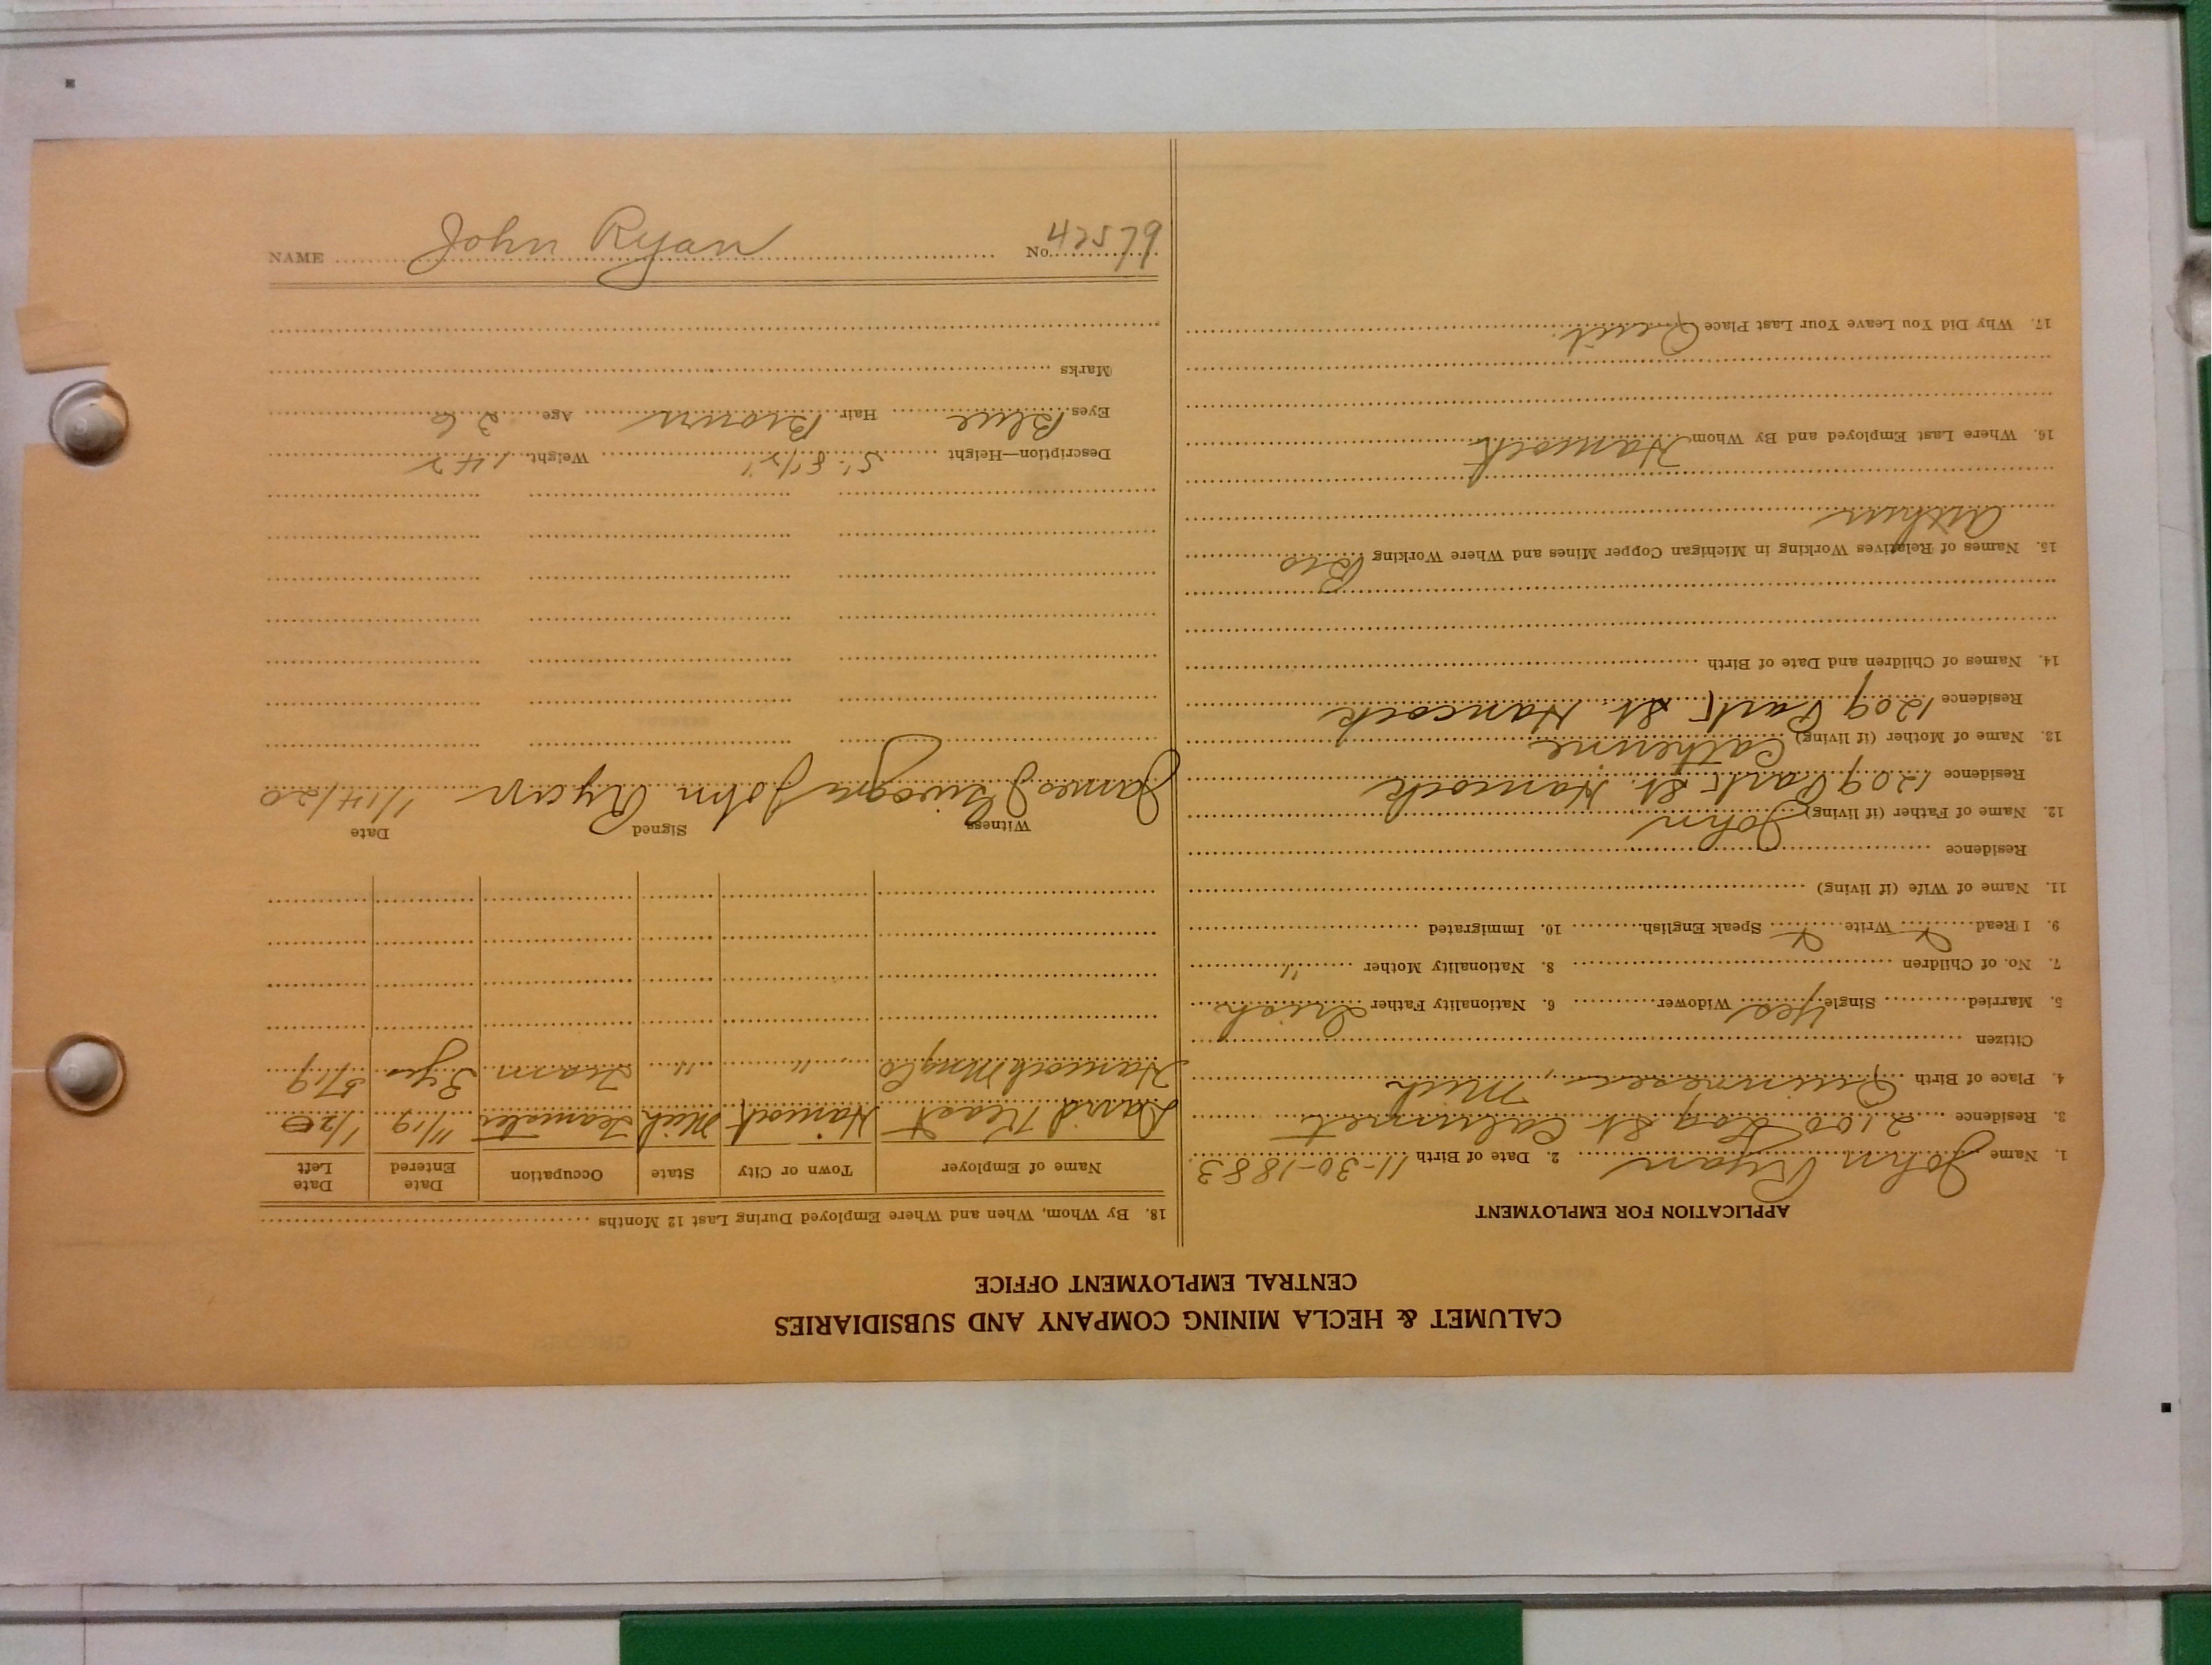 CALUMET & HECLA MINING COMPANY AND SUBSIDIARIES
CENTRAL EMPLOYMENT OFFICE
APPLICATION FOR EMPLOYMENT
1. Name John Ryan 2. Date of Birth 11-30-1883
3. Residence 2100 Log St Calumet
4. Place of Birth Quinnesec, Mich
Citizen
5. Married Single Yes Widower 6. Nationality Father Irish
7. No. of Children 8. Nationality Mother "
9. I Read Write Speak English 10. Immigrated
11. Name of Wife (if living)
Residence
12. Name of Father (if living) John
Residence 1209 Park St. Hancock
13. Name of Mother (if living) Catherine
Residence 1209 Park St. Hancock
14. Names of Children and Date of Birth
15. Names of Relatives Working in Michigan Copper Mines and Where Working Bro
Arthur
16. Where Last Employed and By Whom Hancock
17. Why Did You Leave Your Last Place Quit
18. By Whom, When and Where Employed During Last 12 Months
Name of Employer Town or City State Occupation Date Entered Date Left
David Keast Hancock Mich Teamster 11/19 1/20
Hancock Mng Co " " Tram 3 yrs 5/19
Witness Signed Date
James John Ryan 1/14/20
Description—Height 5' 8 1/2" Weight 142
Eyes Blue Hair Brown Age 36
Marks
NAME John Ryan No. 42579